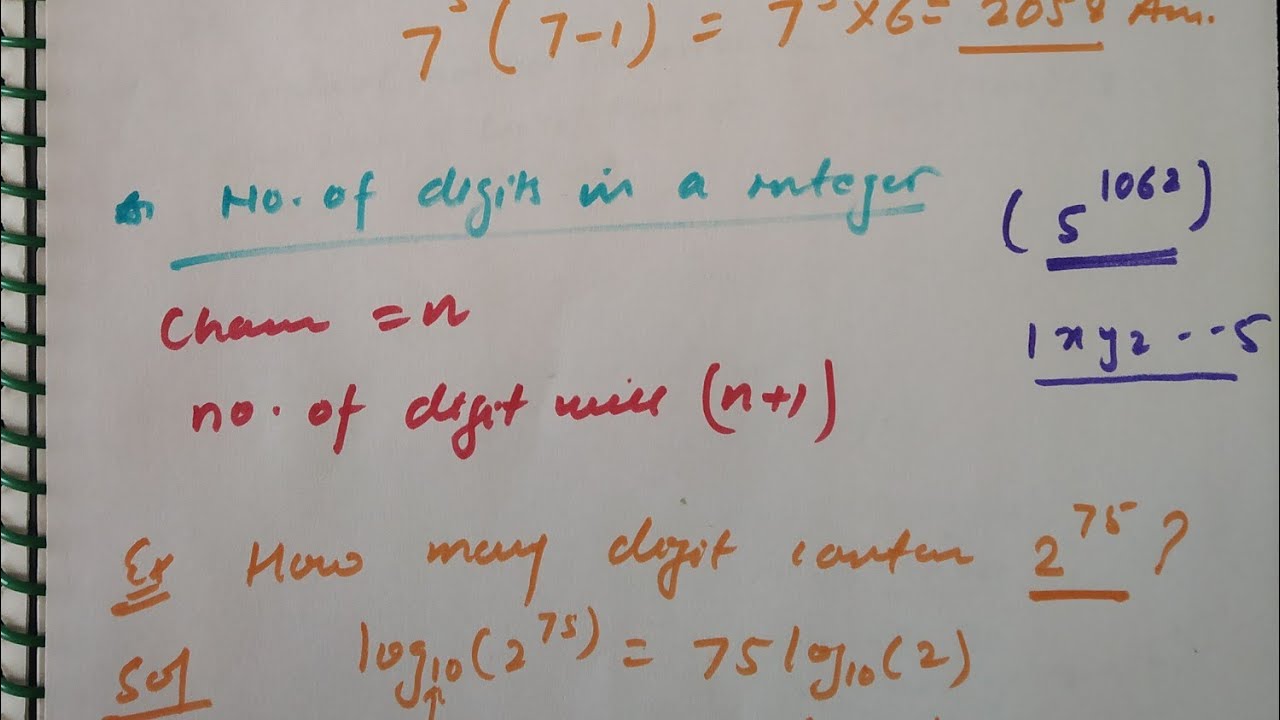 7³ (7-1) = 7³ ×6= 2058 Am.
No. of digits in a integer
(5^1062)
Cham = n
1 x y z - - - 5
no. of digit will (n+1)
Ex How many digit contan 2^75 ?
Sol log₁₀(2^75) = 75 log₁₀(2)